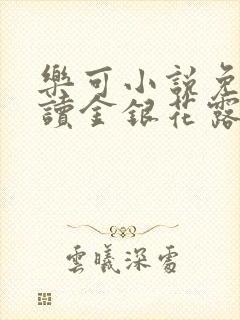 樂可小說免
讀金銀花露
雲曦深處